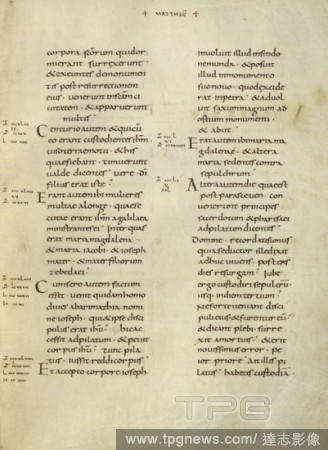 + MATTHEU +
corpora scōrum qui dor
mierant surrexerunt ·
& exeuntes de monumen
tis post resurrectionem
eius · uenerunt in scām ci
uitatem · & apparuerunt
multis ·
Centurio autem & qui cū
eo erant custodientes ihm̄
uiso terraemotu · & his
quae fiebant · timuerunt
ualde dicentes · uere dī
filius erat iste ·
Erant autem ibi mulieres
multae a longe · quae se
cutae erant ihm̄ a galilaea
ministrantes ei · Inter quas
erat maria magdalena
& maria iacobi · & ioseph
mater · & mater filiorum
zebedaei ·
Cum sero autem factum
esset · uenit quidam homo
diues ab arimathia, nomi
ne ioseph · qui & ipse disci
pulus erat ihū · hic ac
cessit ad pilatum · & petiit
corpus ihū · Tunc pila
tus · iussit reddi corpus ·
Et accepto corpore ioseph ·
inuoluit illud in sindo
ne munda · & posuit
illud in monumento
suo nouo · quod excide
rat in petra · & aduol
uit saxum magnum ad
ostium monumenti ·
& abiit ·
Erat autem ibi maria ma
gdalenae · & altera
maria sedentes contra
sepulchrum ·
Altera autem die quae est
post parasceuen · con
uenerunt principes
sacerdotum & pharisaei
ad pilatum dicentes ·
Domine · recordati sumus
quia seductor ille dixit
adhuc uiuens · post tres
dies resurgam · Iube
ergo custodiri sepulcrū
usq; in diem tertium ·
Ne forte ueniant disci
puli eius, & furentur eū ·
& dicant plebi · surre
xit a mortuis · & erit
nouissimus error · pe
ior priore · Ait illis pi
latus · habetis custodiā ·
TPG
www.tpgnews.com/達志影像